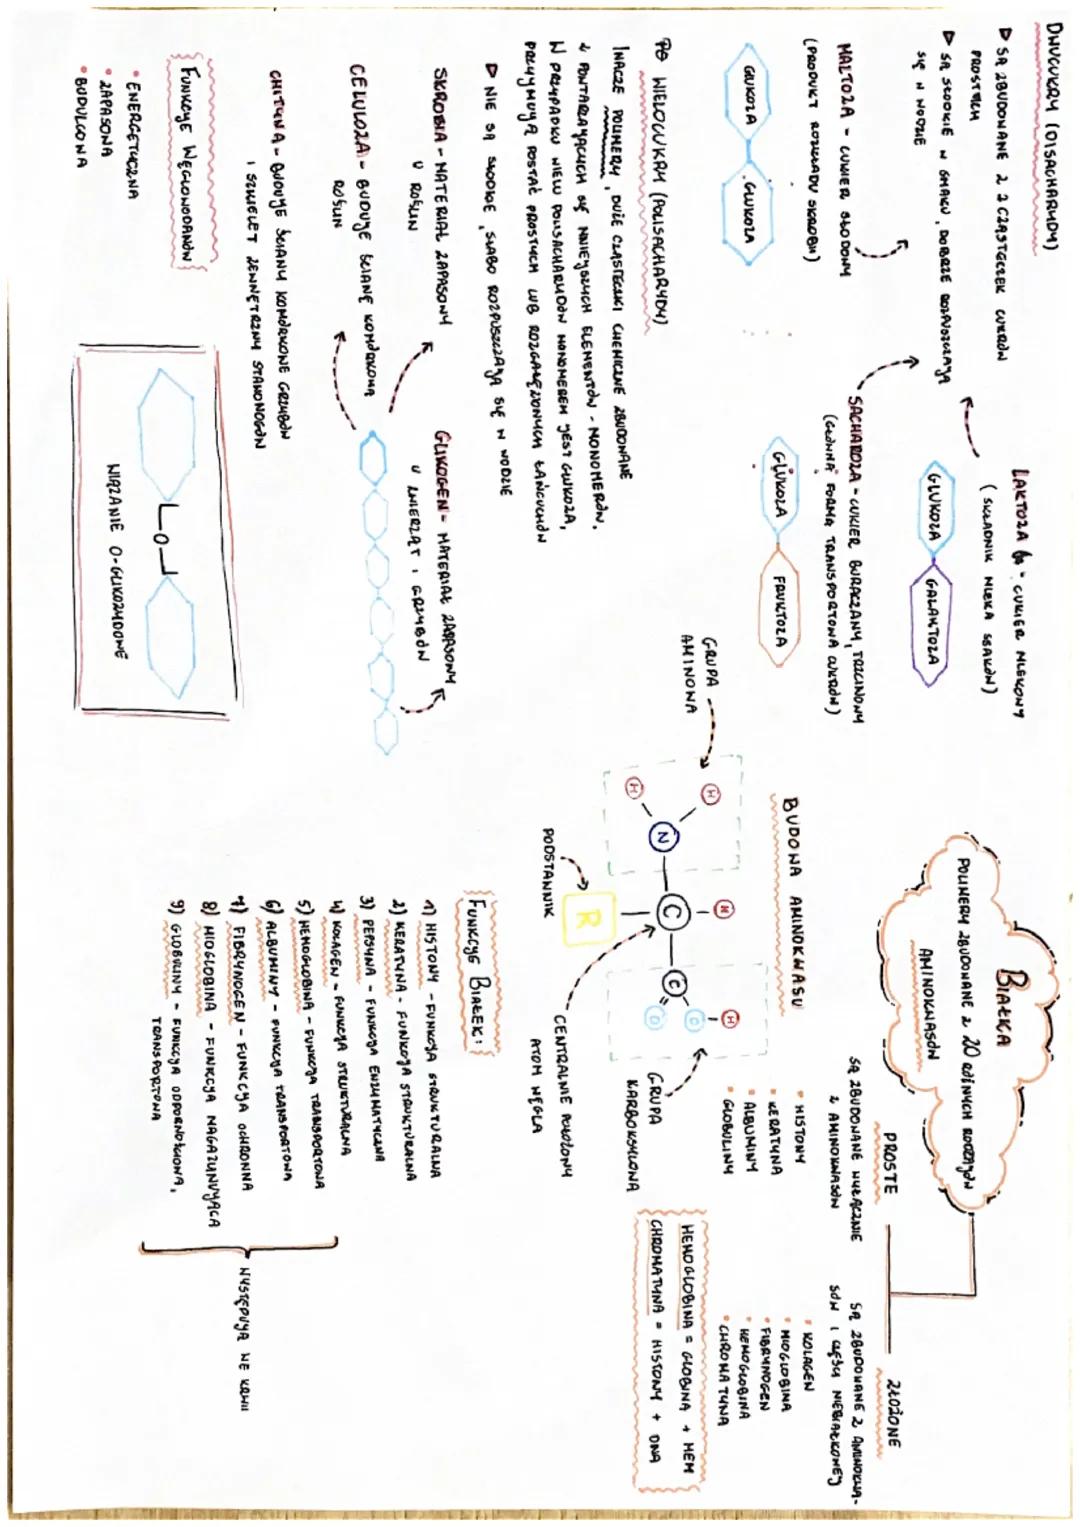 DWUCUKRY (DISACHARYDY)
▷ SĄ ZBUDOWANE Z 2 CZĄSTECZEK CUKRÓW
PROSTYCH
▷ SĄ SŁODKIE W SMAKU, DOBRZE ROZPUSZCZAJĄ
SIĘ W WODZIE
LAKTOZA - CUKIER MLEKOWY
(SKŁADNIK MLEKA SSAKÓW)
GLUKOZA
GALAKTOZA
MALTOZA - CUKIER SŁODOWY
(PRODUKT ROZKŁADU SKROBII)
GLUKOZA
GLUKOZA
SACHAROZA - CUKIER BURACZANY, TRZCINOWY
(GŁÓWNA FORMA TRANSPORTOWA CUKRÓW)
GLUKOZA
FRUKTOZA
WIELOCUKRY (POLISACHARYDY)
INACZEJ POLIMERY, DUŻE CZĄSTECZKI CHEMICZNE ZBUDOWANE
Z POWTARZAJĄCYCH SIĘ MNIEJSZYCH ELEMENTÓW - MONOMERÓW.
W PRZYPADKU WIELU POLISACHARYDÓW MONOMEREM JEST GLUKOZA,
PRZYJMUJĄ POSTAĆ PROSTYCH LUB ROZGAŁĘZIONYCH ŁAŃCUCHÓW
▷ NIE SĄ SŁODKIE, SŁABO ROZPUSZCZAJĄ SIĘ W WODZIE
SKROBIA - MATERIAŁ ZAPASOWY
U ROŚLIN
GLIKOGEN - MATERIAŁ ZAPASOWY
U ZWIERZĄT I GRZYBÓW
CELULOZA - BUDUJE ŚCIANĘ KOMÓRKOWĄ
ROŚLIN
CHITYNA - BUDUJE ŚCIANY KOMÓRKOWE GRZYBÓW
I SZKIELET ZEWNĘTRZNY STAWONOGÓW
FUNKCJE WĘGLOWODANÓW
• ENERGETYCZNA
• ZAPASOWA
• BUDULCOWA
O
WIĄZANIE O-GLIKOZYDOWE
BIAŁKA
POLIMERY ZBUDOWANE Z 20 RÓŻNYCH RODZAJÓW
AMINOKWASÓW
PROSTE
SĄ ZBUDOWANE WYŁĄCZNIE
Z AMINOKWASÓW
• HISTONY
• KERATYNA
• ALBUMINY
• GLOBULINY
ZŁOŻONE
SĄ ZBUDOWANE Z AMINOKWA-
SÓW I CZĘŚCI NIEBIAŁKOWEJ
• KOLAGEN
• MIOGLOBINA
• FIBRYNOGEN
• HEMOGLOBINA
• CHROMATYNA
HEMOGLOBINA = GLOBINA + HEM
CHROMATYNA = HISTONY + DNA
BUDOWA AMINOKWASU
GRUPA
AMINOWA
H
H
N
C
H
C
O
O
H
R
GRUPA
KARBOKSYLOWA
PODSTAWNIK
CENTRALNIE POŁOŻONY
ATOM WĘGLA
FUNKCJE BIAŁEK:
1) HISTONY - FUNKCJA STRUKTURALNA
2) KERATYNA - FUNKCJA STRUKTURALNA
3) PEPSYNA - FUNKCJA ENZYMATYCZNA
4) KOLAGEN - FUNKCJA STRUKTURALNA
5) HEMOGLOBINA - FUNKCJA TRANSPORTOWA
6) ALBUMINY - FUNKCJA TRANSPORTOWA
7) FIBRYNOGEN - FUNKCJA OCHRONNA
8) MIOGLOBINA - FUNKCJA MAGAZYNUJĄCA
9) GLOBULINY - FUNKCJA ODPORNOŚCIOWA,
TRANSPORTOWA
WYSTĘPUJĄ WE KRWI